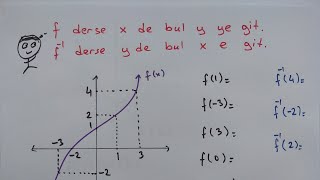 f derse x de bul y ye git.
f⁻¹ derse y de bul x e git.
f(x)
4
2
1
-3
-2
1
3
-2
f(1)=
f(-3)=
f(3)=
f(0)=
f⁻¹(4)=
f⁻¹(-2)=
f⁻¹(2)=